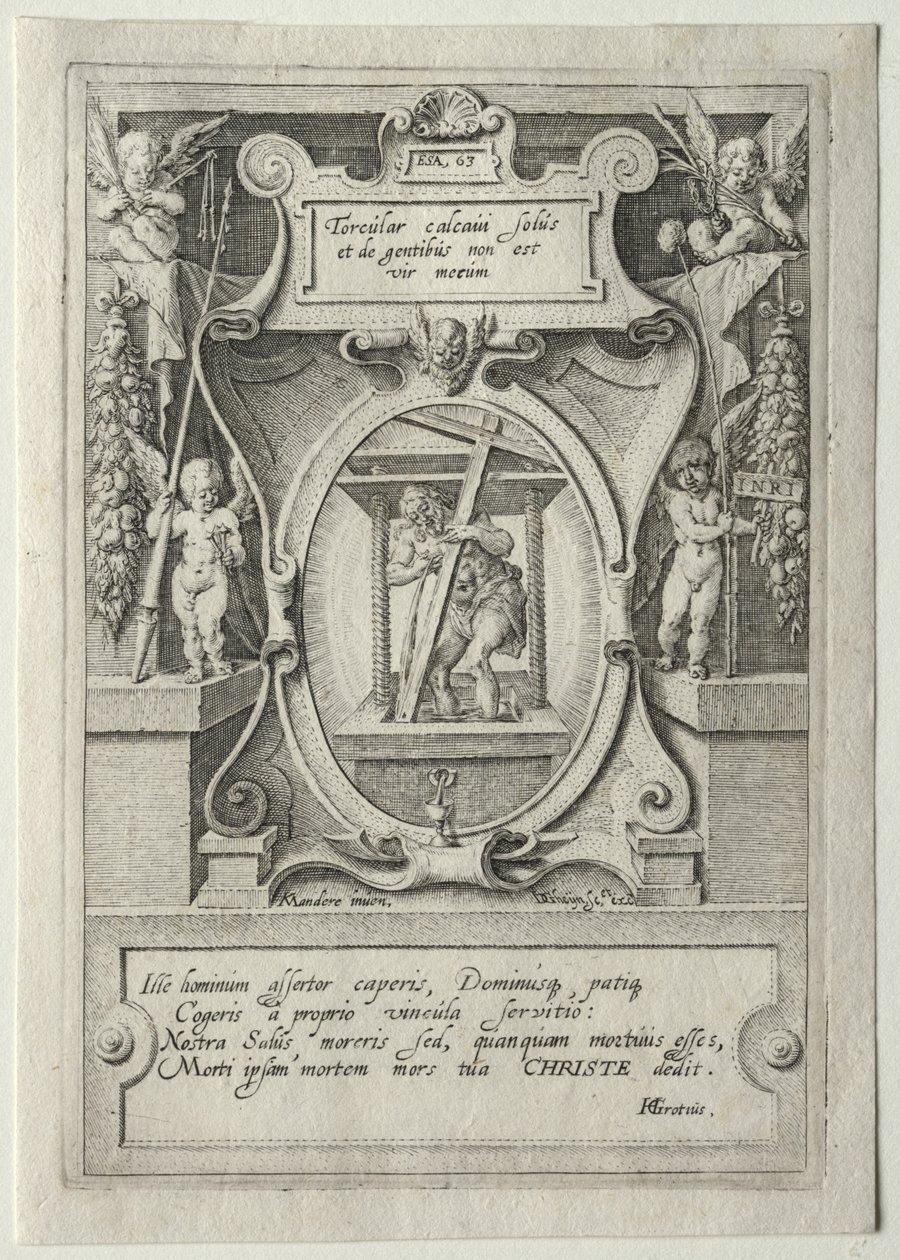 ESA, 63
Torcúlar calcaúi solús
et de gentibús non est
vir mecúm
INRI
KMandere inuen,
DGheijn sc, et exc
Ille hominúm assertor caperis, Dominúsq, patiq
Cogeris à proprio vincúla servitio:
Nostra Salús moreris sed, quanqúam mortúús esses,
Morti ipsam mortem mors túa CHRISTE dedit.
HGrotiús,